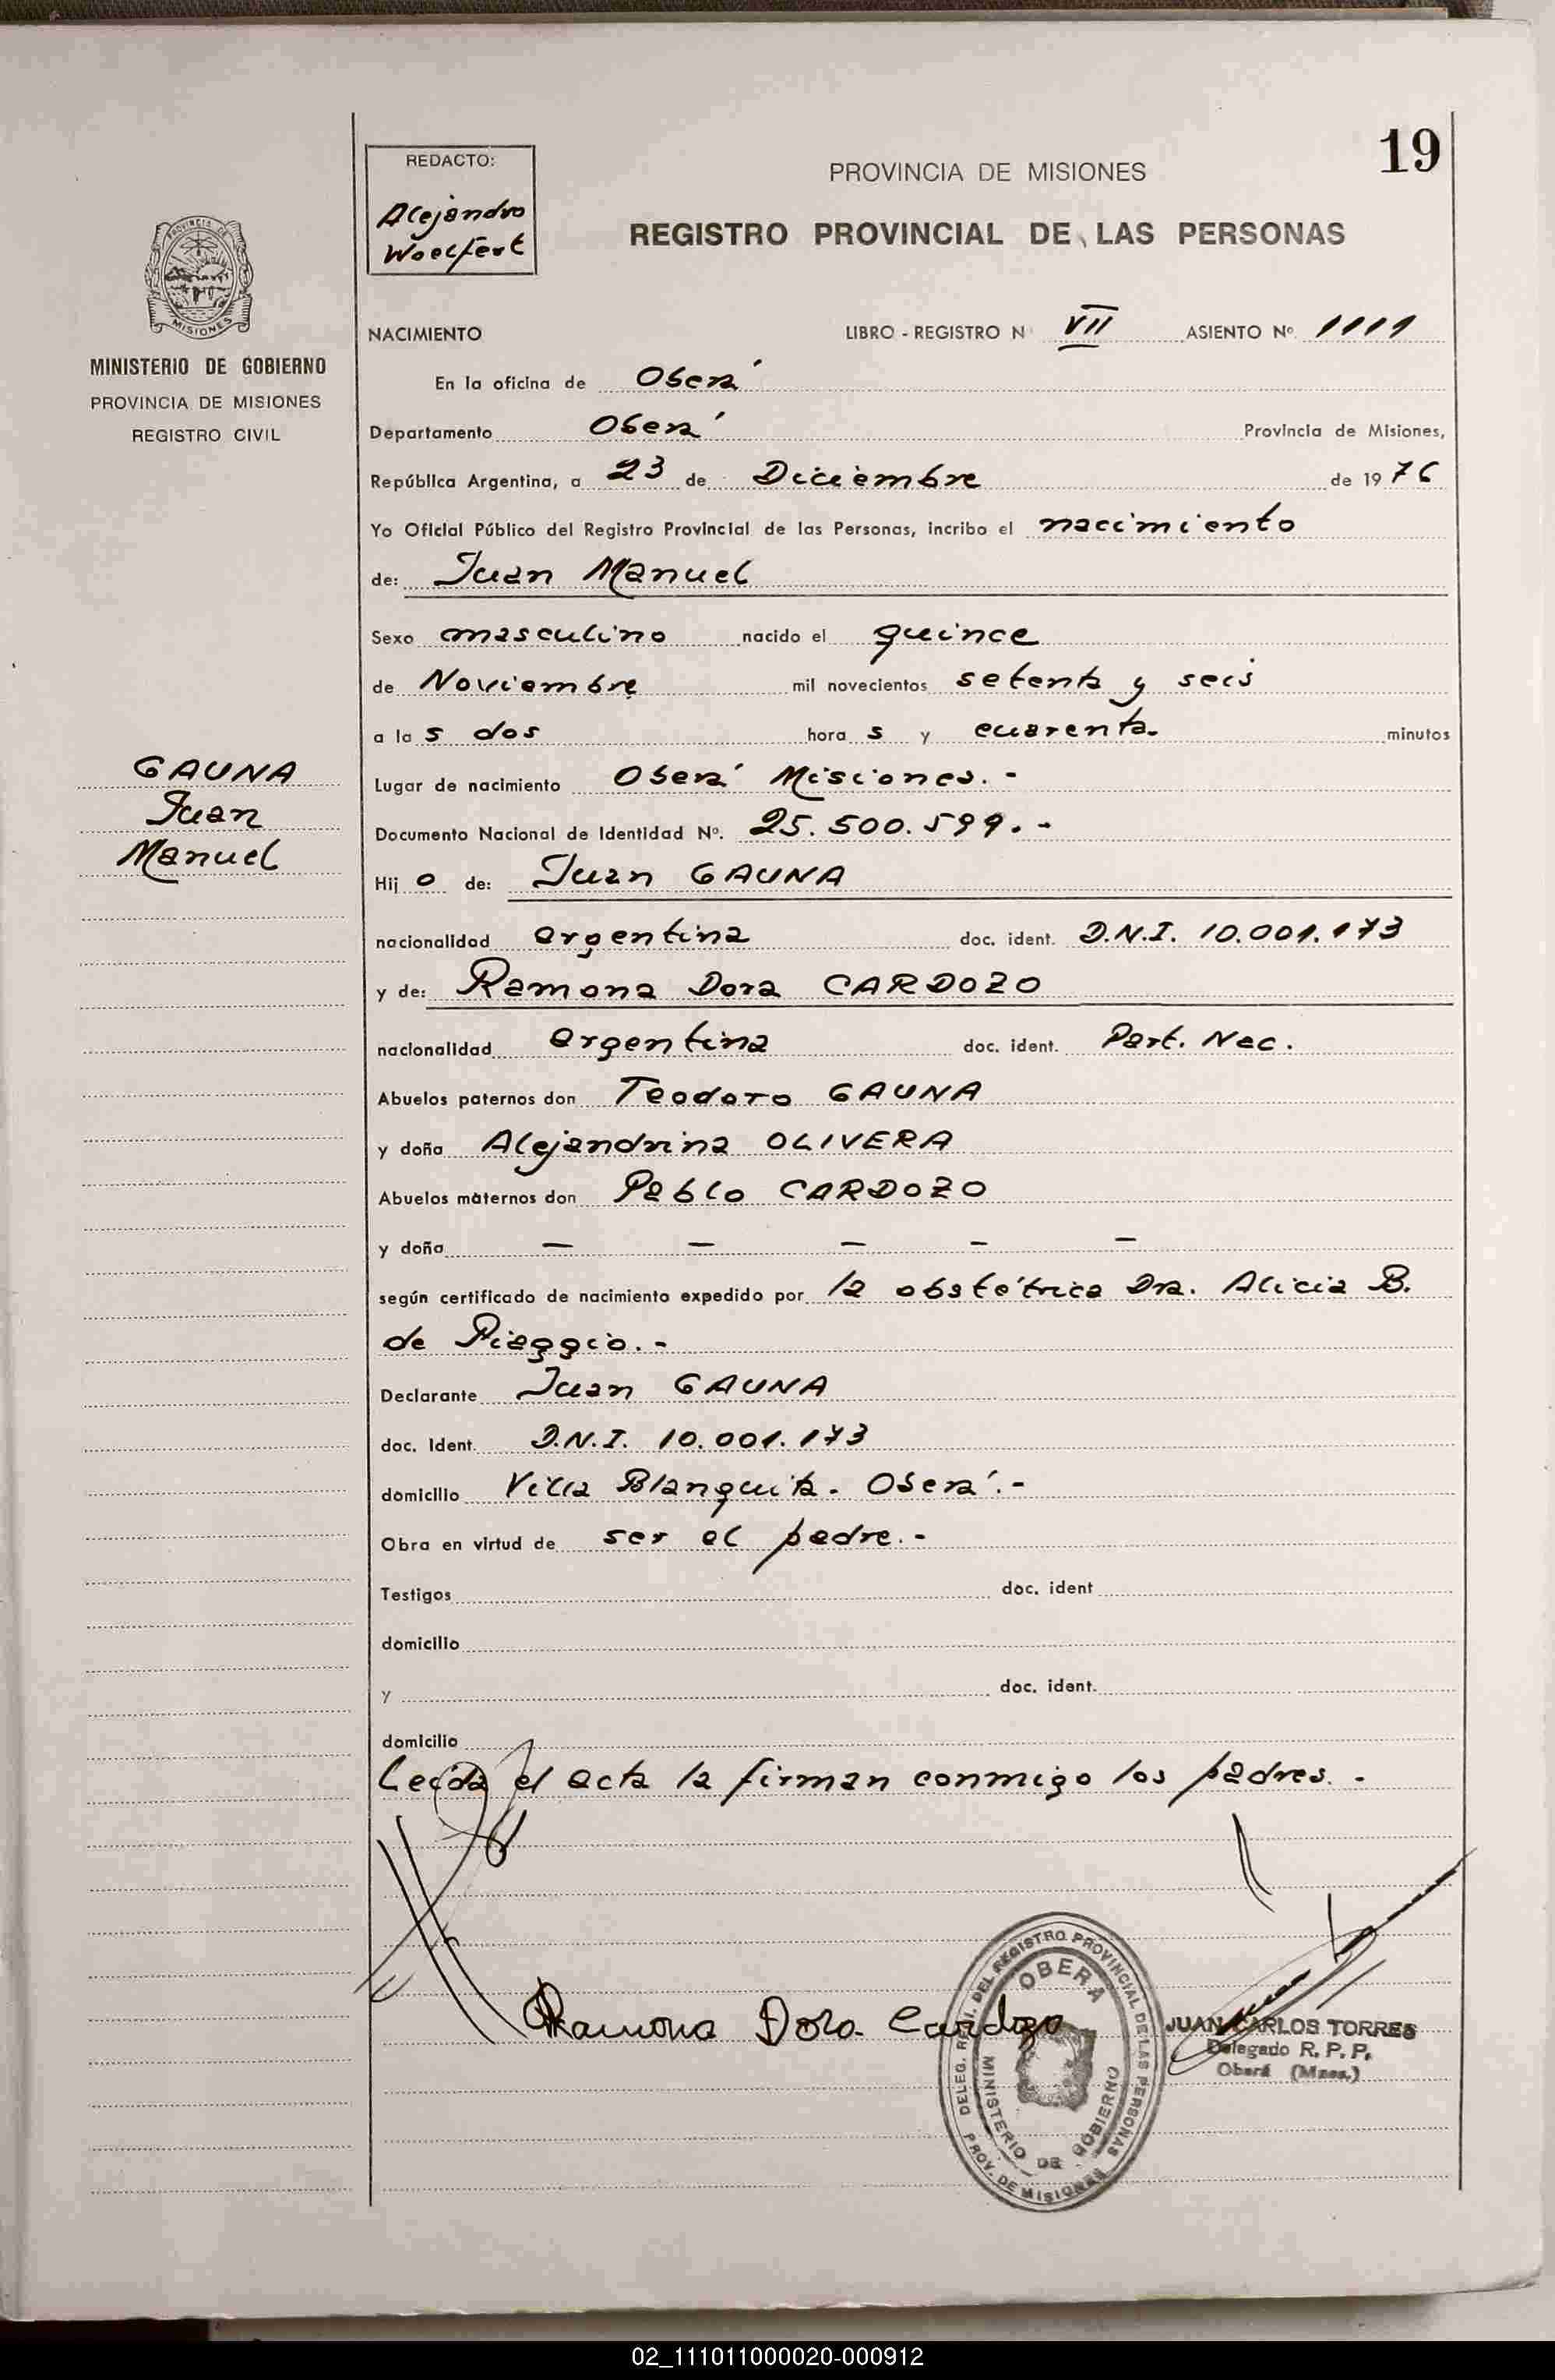 19
REDACTO:
Alejandro
Woelfert
PROVINCIA DE MISIONES
REGISTRO PROVINCIAL DE LAS PERSONAS
PROVINCIA DE
MISIONES
MINISTERIO DE GOBIERNO
PROVINCIA DE MISIONES
REGISTRO CIVIL
NACIMIENTO LIBRO - REGISTRO N VII ASIENTO Nº 1111
En la oficina de Oberá
Departamento Oberá Provincia de Misiones,
República Argentina, a 23 de Diciembre de 1976
Yo Oficial Público del Registro Provincial de las Personas, incribo el nacimiento
de: Juan Manuel
Sexo masculino nacido el quince
de Noviembre mil novecientos setenta y seis
a las dos horas y cuarenta. minutos
GAUNA
Juan
Manuel
Lugar de nacimiento Oberá Misiones.-
Documento Nacional de Identidad Nº. 25.500.599.-
Hijo de: Juan GAUNA
nacionalidad argentina doc. ident. D.N.I. 10.001.173
y de: Ramona Dora CARDOZO
nacionalidad argentina doc. ident. Part. Nac.
Abuelos paternos don Teodoro GAUNA
y doña Alejandrina OLIVERA
Abuelos maternos don Pablo CARDOZO
y doña — — — — —
según certificado de nacimiento expedido por la obstétrica Dra. Alicia B.
de Piaggio.-
Declarante Juan GAUNA
doc. Ident. D.N.I. 10.001.173
domicilio Villa Blanquita. Oberá.-
Obra en virtud de ser el padre.-
Testigos doc. ident
domicilio
y doc. ident.
domicilio
Leída el acta la firman conmigo los padres.-
Ramona Dora Cardozo
DELEG. REG. DEL REGISTRO PROVINCIAL DE LAS PERSONAS
OBERA
MINISTERIO DE GOBIERNO
PROV. DE MISIONES
JUAN CARLOS TORRES
Delegado R. P. P.
Oberá (Mnes.)
02_111011000020-000912